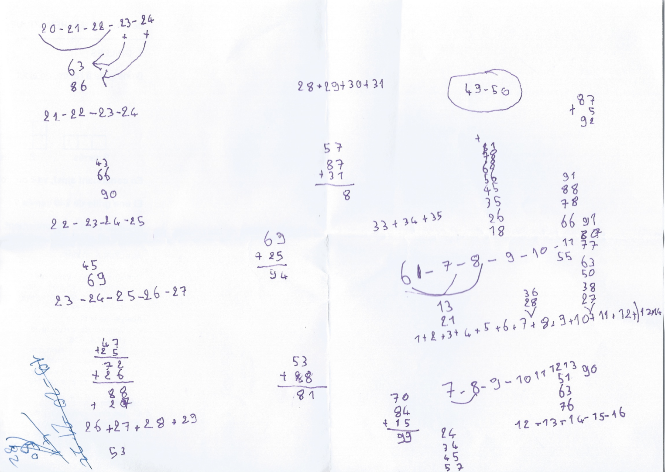 20-21-22-23-24
+ +
63
86
21-22-23-24
43
66
90
22-23-24-25
45
69
23-24-25-26-27
47
+25
72
+26
88
26+27+28+29
53
28+29+30+31
57
87
+31
8
69
+25
94
53
+88
81
49-50
87
+5
92
+
45
35
26
18
91
88
78
66
91
77
55
63
50
38
27
33+34+35
61-7-8-9-10-11
13
21
36
28
1+2+3+4+5+6+7+8+9+10+11+12+
7-8-9-10 11 12 13 90
51
63
76
12+13+14-15-16
70
84
+15
99
24
34
45
57